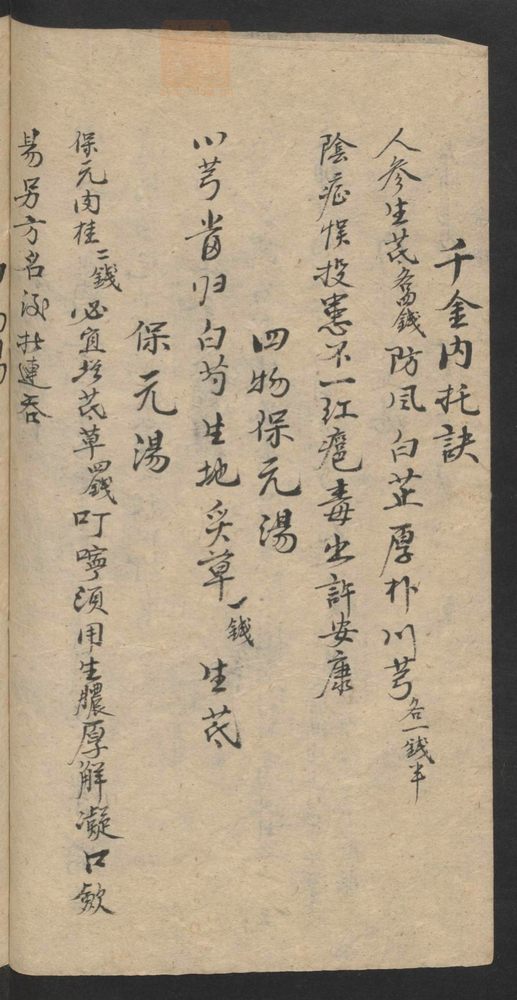 千金內托訣
人參生芪各兩錢防風白芷厚朴川芎各一錢半
陰症悮投患不一紅瘢毒出許安康
四物保元湯
川芎當归白芍生地炙草一錢生芪
保元湯
保元肉桂二錢必宜培芪草四錢叮嚀須用生膿厚解凝口歛
易另方名連吞